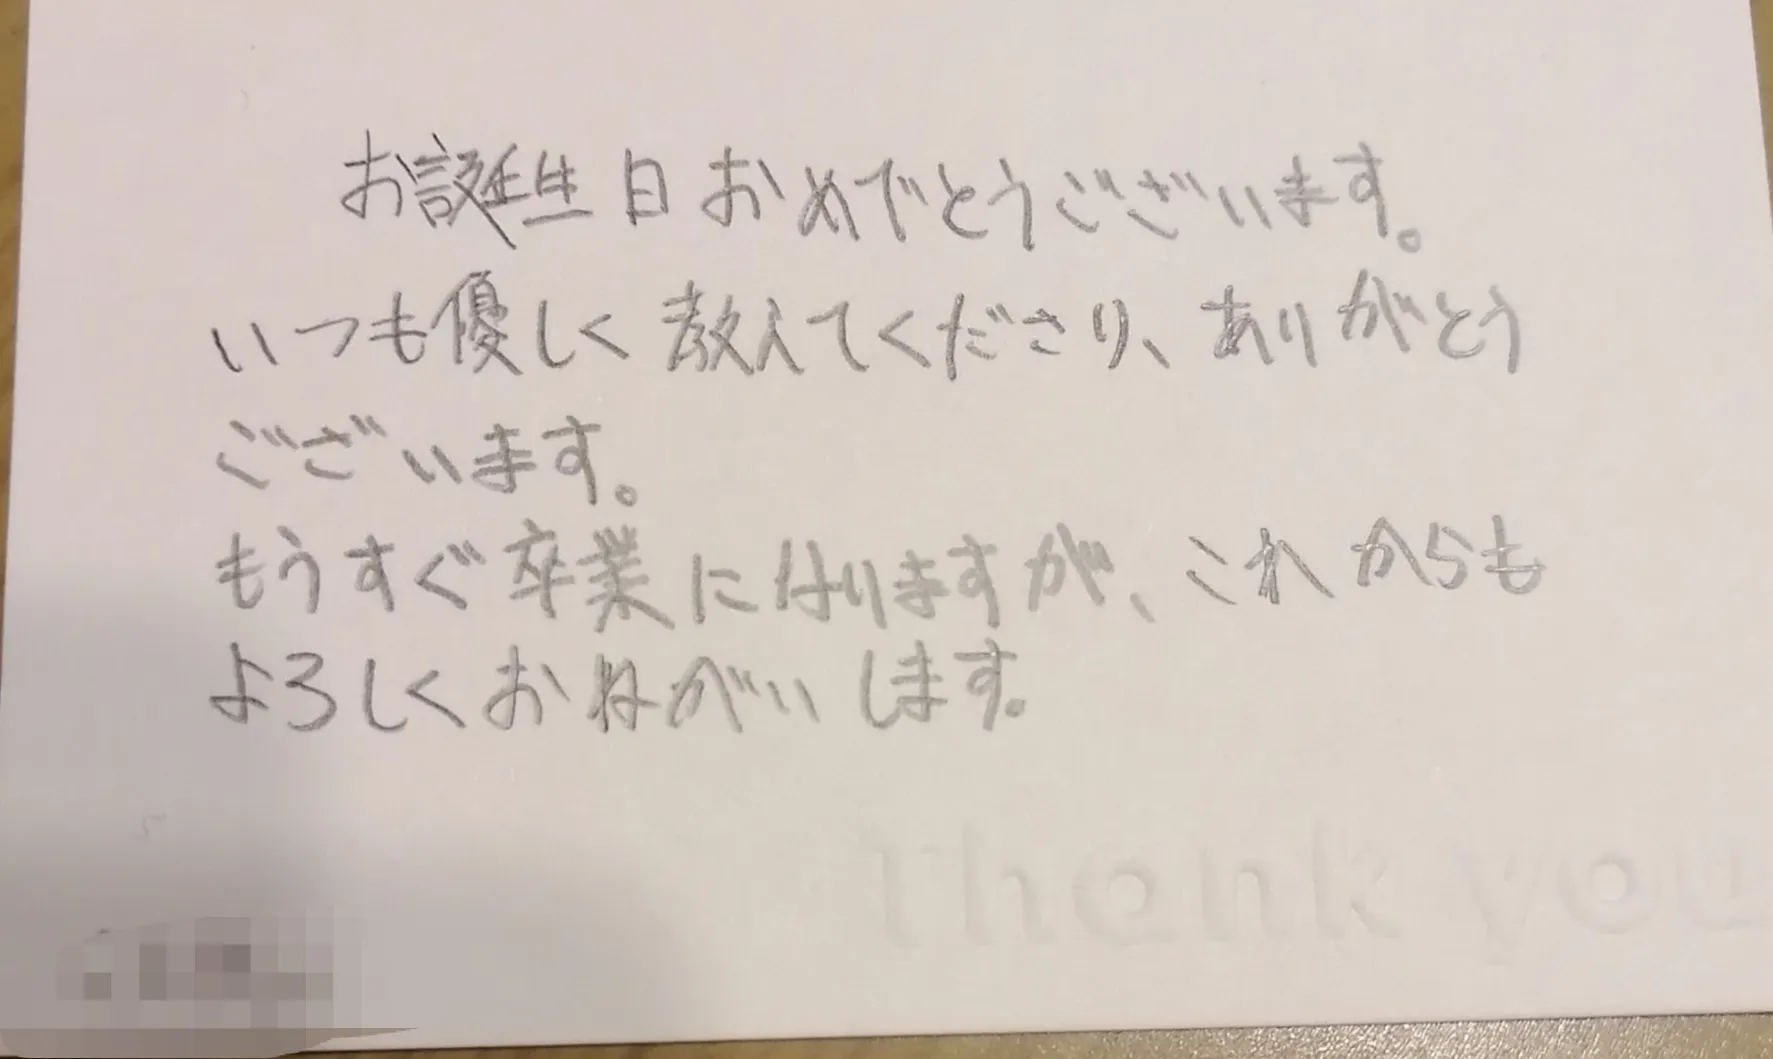 お誕生日おめでとうございます。
いつも優しく教えてくださり、ありがとう
ございます。
もうすぐ卒業になりますが、これからも
よろしくおねがいします。
thank you